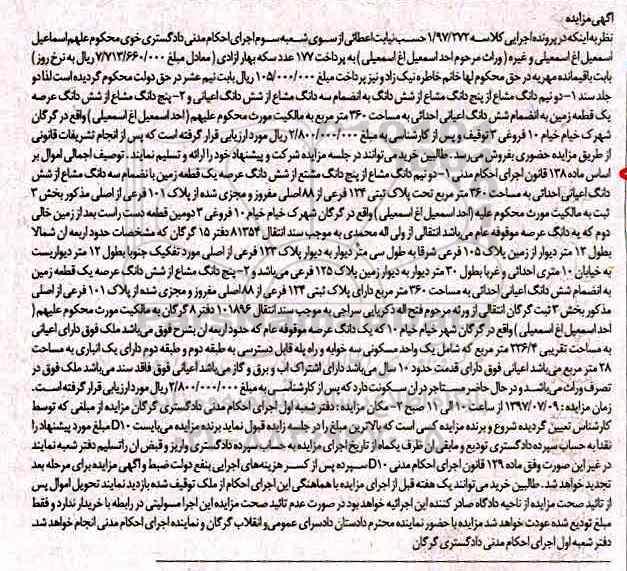 آگهی مزایده
نظر به اینکه در پرونده اجرایی کلاسه ۱/۹۷/۲۷۲ حسب نیابت اعطائی از سوی شعبه سوم اجرای احکام مدنی دادگستری خوی محکوم علیهم اسماعیل
اسمعیل اغ اسمعیلی و غیره (وراث مرحوم احد اسمعیل اغ اسمعیلی) به پرداخت ۱۷۷ عدد سکه بهار ازادی (معادل مبلغ ۷/۷۱۳/۶۶۰/۰۰۰ ریال به نرخ روز)
بابت باقیمانده مهریه در حق محکوم لها خانم خاطره نیک زاد و نیز پرداخت مبلغ ۱۰۵/۰۰۰/۰۰۰ ریال بابت نیم عشر در حق دولت محکوم گردیده است لذا دو
جلد سند ۱-دو نیم دانگ مشاع از پنج دانگ مشاع از شش دانگ به انضمام سه دانگ مشاع از شش دانگ اعیانی و ۲- پنج دانگ مشاع از شش دانگ عرصه
یک قطعه زمین به انضمام شش دانگ اعیانی احداثی به مساحت ۳۶۰ متر مربع به مالکیت مورث محکوم علیهم (احد اسمعیل اغ اسمعیلی) واقع در گرگان
شهرک خیام خیام ۱۰ فروغی ۳ توقیف و پس از کارشناسی به مبلغ ۲/۸۰۰/۰۰۰/۰۰۰ ریال مورد ارزیابی قرار گرفته است که پس از انجام تشریفات قانونی
از طریق مزایده حضوری بفروش می‌رسد. طالبین خرید می‌توانند در جلسه مزایده شرکت و پیشنهاد خود را ارائه و تسلیم نمایند. توصیف اجمالی اموال بر
اساس ماده ۱۳۸ قانون اجرای احکام مدنی ۱-دو نیم دانگ مشاع از پنج دانگ مشتع از شش دانگ عرصه یک قطعه زمین با نضمام سه دانگ مشاع از شش
دانگ اعیانی احداثی به مساحت ۳۶۰ متر مربع تحت پلاک ثبتی ۱۲۴ فرعی از ۸۸ اصلی مفروز و مجزی شده از پلاک ۱۰۱ فرعی از اصلی مذکور بخش ۳
ثبت به مالکیت مورث محکوم علیه (احد اسمعیل اغ اسمعیلی) واقع در گرگان شهرک خیام خیام ۱۰ فروغی ۳ دومین قطعه دست راست بعد از زمین خالی
دوم که یه دانگ عرصه موقوفه عام می‌باشد انتقالی از ولی اله محمدی به موجب سند انتقال ۸۱۳۵۴ دفتر ۱۵ گرگان که مشخصات حدود اربعه ان شمالا
بطول ۱۲ متر دیوار از زمین پلاک ۱۰۵ فرعی شرقا به طول سی متر دیوار به دیوار پلاک ۱۲۳ فرعی از اصلی مورد تفکیک جنوبا بطول ۱۲ متر دیواریست
به خیابان ۱۰ متری احداثی و غربا بطول ۳۰ متر دیوار به دیوار زمین پلاک ۱۲۵ فرعی می‌باشد و ۲- پنج دانگ مشاع از شش دانگ عرصه یک قطعه زمین
به انضمام شش دانگ اعیانی احداثی به مساحت ۳۶۰ متر مربع دارای پلاک ثبتی ۱۲۴ فرعی از ۸۸ اصلی مفروز و مجزی شده از پلاک ۱۰۱ فرعی از اصلی
مذکور بخش ۳ ثبت گرگان انتقالی از ورثه مرحوم فتح اله ذکریایی سراجی به موجب سند انتقال ۱۰۱۸۹۶ دفتر ۸ گرگان به مالکیت مورث محکوم علیهم (
احد اسمعیل اغ اسمعیلی) واقع در گرگان شهر خیام خیام ۱۰ که یک دانگ عرصه موقوفه عام که حدود اربعه ان بشرح فوق می‌باشد ملک فوق دارای اعیانی
به مساحت تقریبی ۳۳۶/۴ متر مربع که شامل یک واحد مسکونی سه خوابه و راه پله قابل دسترسی به طبقه دوم و طبقه دوم دارای یک انباری به مساحت
۲۸ متر مربع می‌باشد اعیانی فوق دارای قدمت حدود ۱۰ سال می‌باشد دارای اشتراک اب و برق و گاز می‌باشد اعیانی فوق فاقد سند می‌باشد ملک فوق در
تصرف وراث می‌باشد و در حال حاضر مستاجر در ان سکونت دارد که پس از کارشناسی به مبلغ ۲/۸۰۰/۰۰۰/۰۰۰ ریال مورد ارزیابی قرار گرفته است.
زمان مزایده: ۱۳۹۷/۰۷/۰۹ از ساعت ۱۰ الی ۱۱ صبح ۲- مکان مزایده: دفتر شعبه اول اجرای احکام مدنی دادگستری گرگان مزایده از مبلغی که توسط
کارشناس تعیین گردیده شروع و برنده مزایده کسی است که بالاترین مبلغ را در جلسه زایده قبول نماید برنده مزایده می‌بایست D10 مبلغ مورد پیشنهاد را
نقدا به حساب سپرده دادگستری تودیع و مابقی ان ظرف یکماه از تاریخ اجرای مزایده به حساب سپرده دادگستری واریز و قبض ان راتسلیم دفتر شعبه نمایند
در غیر این صورت وفق ماده ۱۲۹ قانون اجرای احکام مدنی D10 سپرده پس از کسر هزینه‌های اجرایی بنفع دولت ضبط و آگهی مزایده برای مرحله بعد
تجدید خواهد شد. طالبین خرید می‌توانند یک هفته قبل از اجرای مزایده با هماهنگی این اجرای احکام از ملک توقیف شده بازدید نمایند تحویل اموال پس
از تائید صحت مزایده از ناحیه دادگاه صادر کننده این اجرائیه خواهد بود در صورت عدم تائید صحت مزایده این اجرا مسولیتی در رابطه با خریدار ندارد و فقط
مبلغ تودیع شده عودت خواهد شد مزایده با حضور نماینده محترم دادستان دادسرای عمومی و انقلاب گرگان و نماینده اجرای احکام مدنی انجام خواهد شد.
دفتر شعبه اول اجرای احکام مدنی دادگستری گرگان